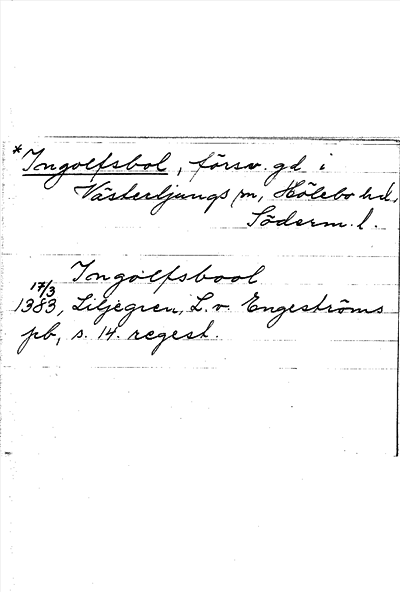 *Ingolfsbol, försv. gd i
Västerljungs sn, Hölebo hd,
Söderm. l.
Ingolfsbool
17/3
1383, Liljegren, L. v. Engeströms
pb, s. 14. regest.